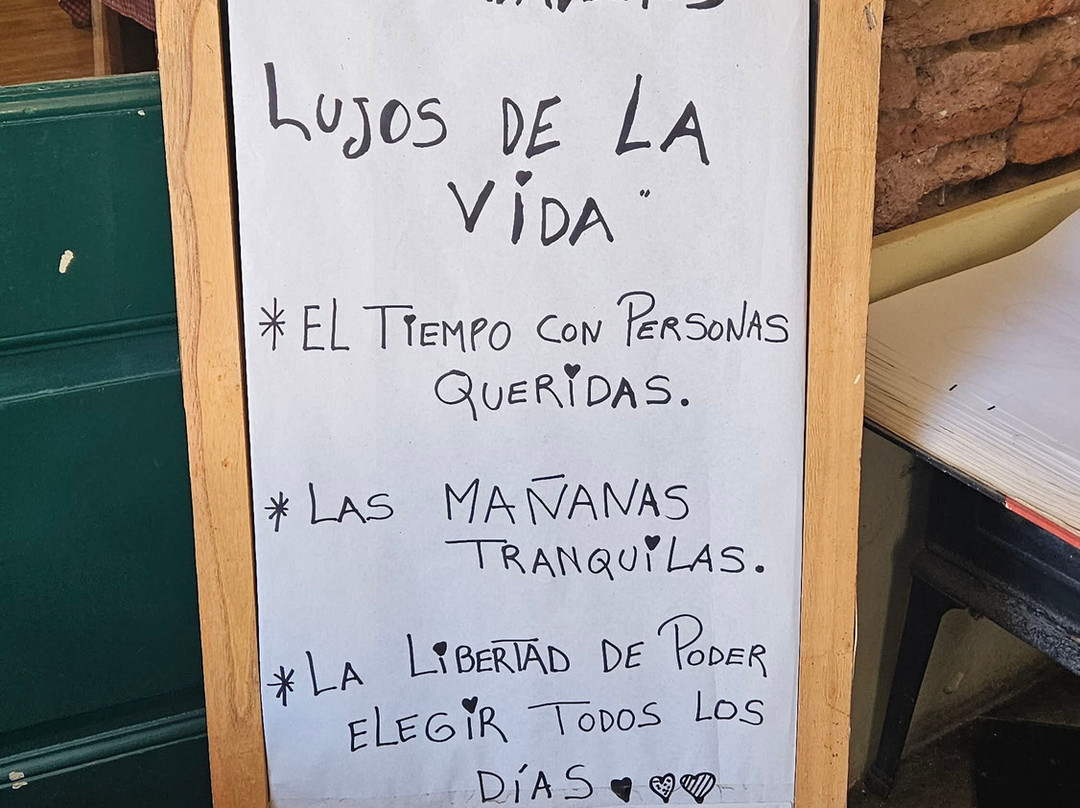 LUJOS DE LA
VIDA"
* EL TIEMPO CON PERSONAS
QUERIDAS.
* LAS MAÑANAS
TRANQUILAS.
* LA LIBERTAD DE PODER
ELEGIR TODOS LOS
DÍAS